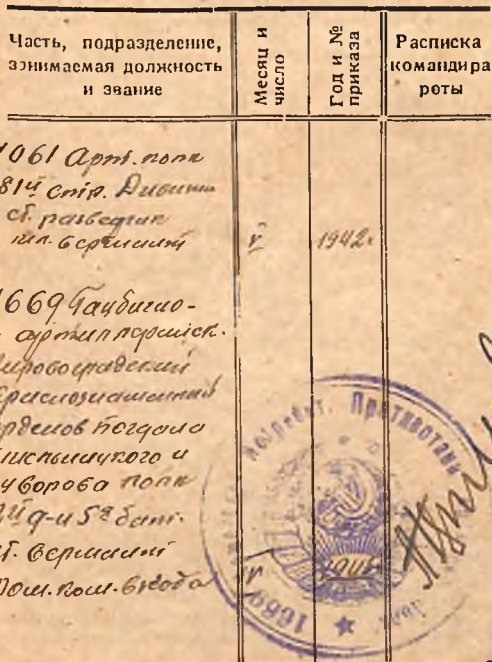 Часть, подразделение,
занимаемая должность
и звание
Месяц и
число
Год и №
приказа
Расписка
командира
роты
1061 Арт. полк
81й стр.
ст. разведчик
сержант
V
1942г
1669
артиллерийск.
ировоградский
раснознаменный
рденов Богдана
мельницкого и
уворова полк
5я бат.
ст. сержант
Пом. ком. взвода
V
Истребит. Противотанк
1669